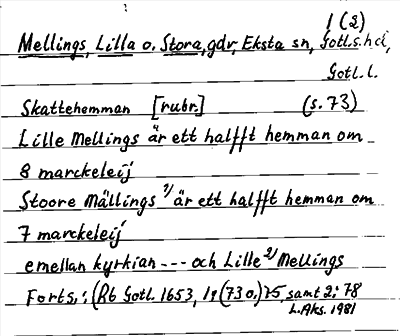 1 (2)
Mellings, Lilla o. Stora, gdr, Eksta sn, Gotl. s. hd,
Gotl. l.
Skattehemman [rubr.] (s. 73)
Lille Mellings är ett halfft hemman om
8 marckeleij
Stoore Mällings 1) är ett halfft hemman om
7 marckeleij
emellan kyrkian --- och Lille 2) Mellings
Forts.: (Rb Gotl. 1653, 19 (730.) 75 samt 2: 78
L. Aks. 1981